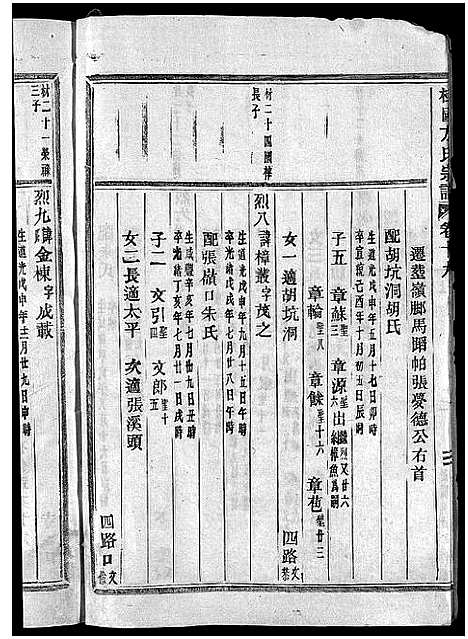 遷塟嶺腳馬晤帕張夌德公右首
配胡坑洞胡氏
生道光戊申年五月十七日卯時
卒宣統己酉年十月初五日辰時
子五 章蘇聖三 章源聖六出繼
章輪聖八 章餘聖十六 章苞聖廿三
女一適胡坑洞 四路文
材二十四國樟
長子
烈八諱樟叢字茂之
生道光戊申年九月十五日午時
卒光緒戊戌年七月廿八日午時
配張嶺口朱氏
生咸豐辛亥年七月初九日丑時
卒光緒丁亥年七月廿一日戌時
子二 文引聖四 文郎聖十五
女二長適太平 次適張溪頭 四路口文
材二十一榮祿
三子
烈九諱金棟字成韯
生道光戊申年十二月廿九日卯時